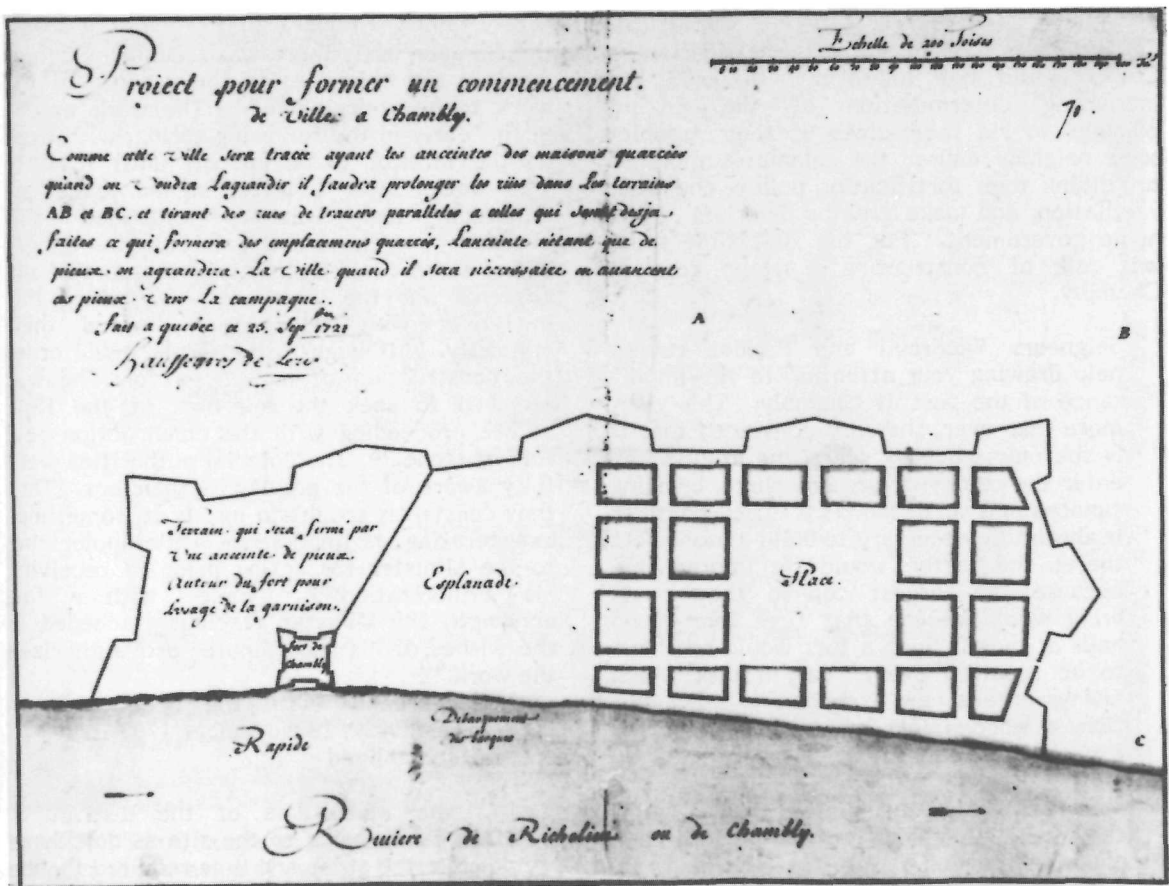 Echelle de 200 Toises
Proiect pour former un commencement.
de Ville a Chambly.
70
Comme cette ville sera tracée ayant les anceintes des maisons quarrées
quand on voudra lagrandir il faudra prolonger les rües dans les terrains
AB et BC. et tirant des rues de travers paralleles a celles qui seront desja
faites ce qui formera des emplacemens quarrés, lanceinte nétant que de
pieux on agrandira la ville quand il sera necessaire en avancent
des pieux vers la campagne.
fait a quebec ce 25. Sepbre 1721
Chaussegros de Lery
A
B
Terrain qui sera fermé par
une anceinte de pieux
autour du fort pour
lusage de la garnison.
Esplanade
Place
fort de
Chambly
Debarquement
des barques
Rapide
C
Riviere de Richelieu ou de Chambly.